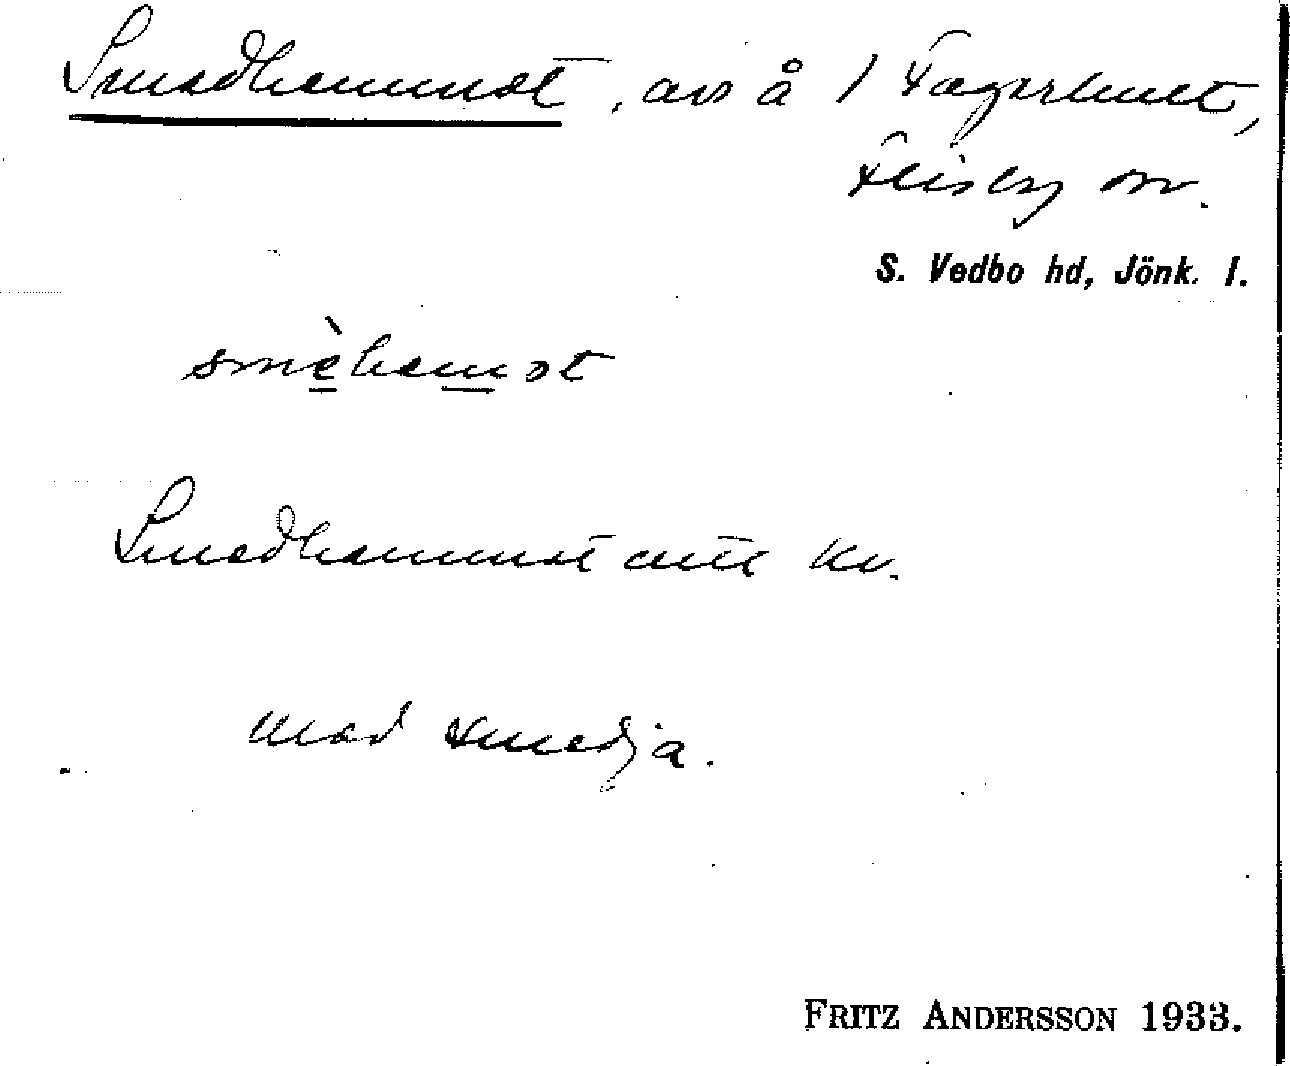 Smedhemmet, avs å 1 Fagerhult,
Flisby sn.
S. Vedbo hd, Jönk. l.
smèhemət
Smedhemmet
med smedja.
FRITZ ANDERSSON 1933.